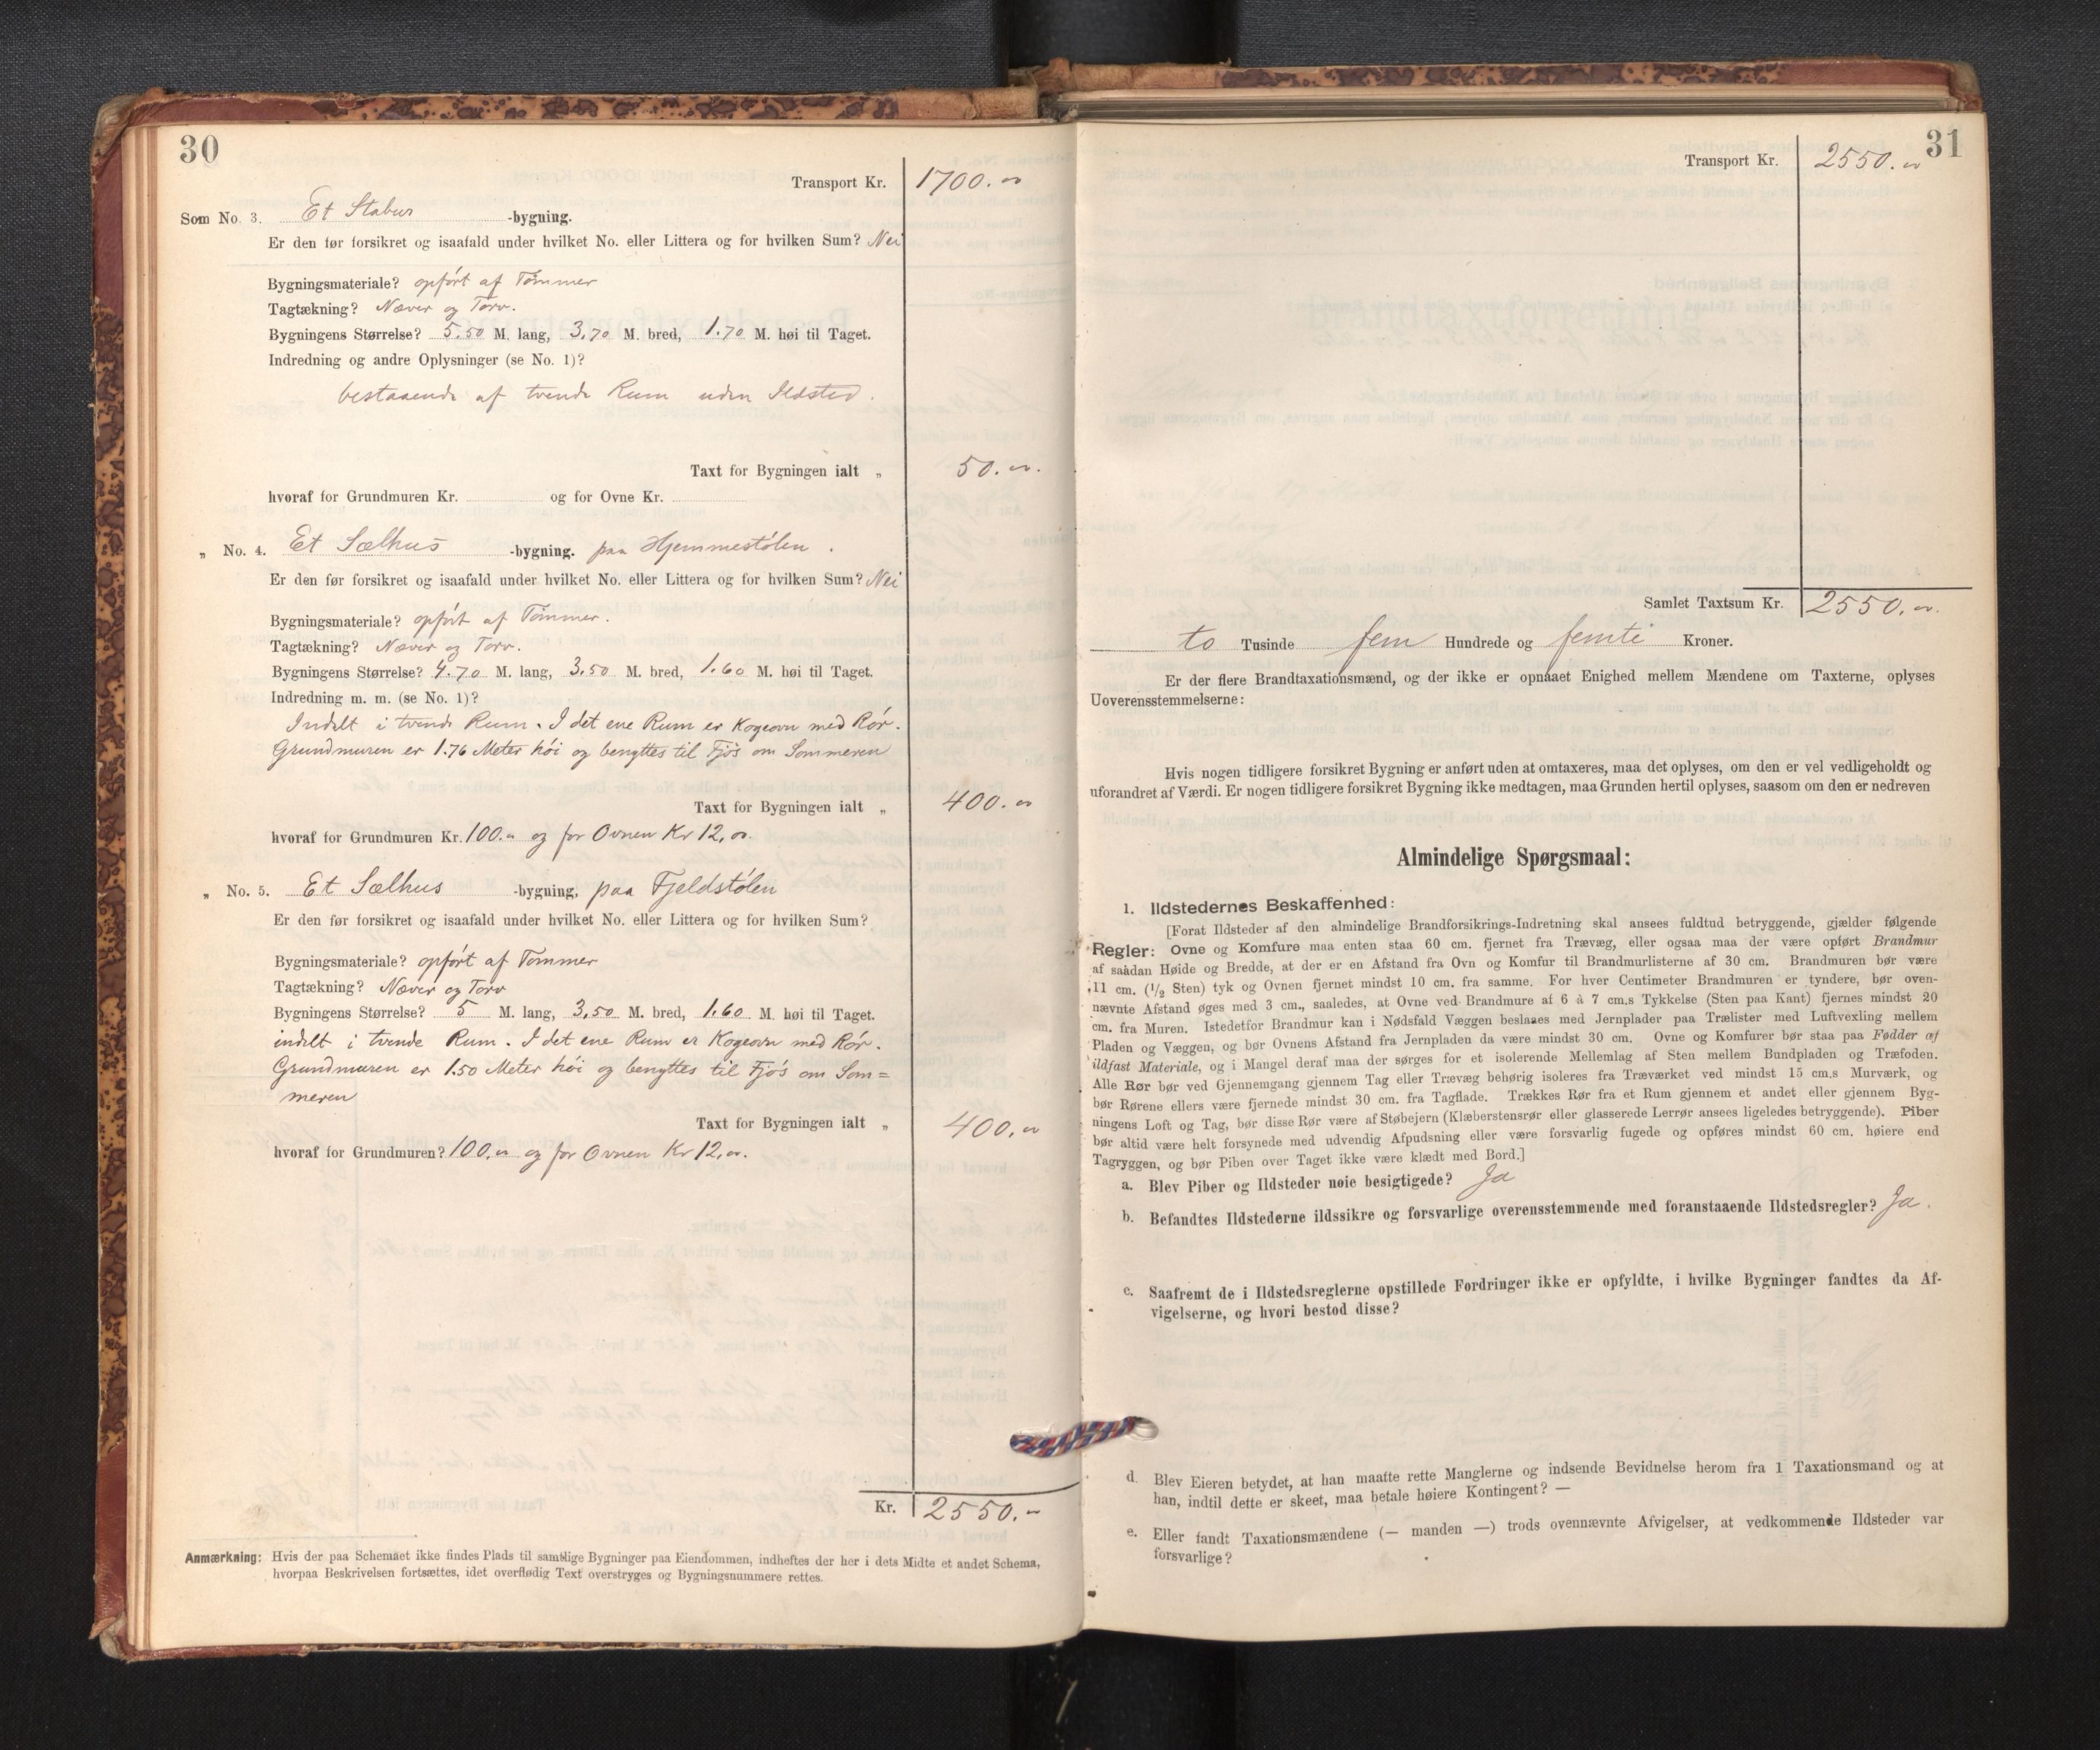 30
Transport Kr. 1700.00
Som No. 3. Et Stabur -bygning.
Er den før forsikret og isaafald under hvilket No. eller Littera og for hvilken Sum? Nei
Bygningsmateriale? opført af Tømmer
Tagtækning? Næver og Torv.
Bygningens Størrelse? 5.50 M. lang, 3,70 M. bred, 1.70 M. høi til Taget.
Indredning og andre Oplysninger (se No. 1)?
bestaaende af tvende Rum uden Ildsted.
Taxt for Bygningen ialt „ 50.00.
hvoraf for Grundmuren Kr. og for Ovne Kr.
„ No. 4. Et Sælhus -bygning. paa Hjemmestølen.
Er den før forsikret og isaafald under hvilket No. eller Littera og for hvilken Sum? Nei
Bygningsmateriale? opført af Tømmer.
Tagtækning? Næver og Torv.
Bygningens Størrelse? 4.70 M. lang, 3,50 M. bred, 1.60 M. høi til Taget.
Indredning m. m. (se No. 1)?
Indelt i tvende Rum. I det ene Rum er Kogeovn med Rør.
Grundmuren er 1.76 Meter høi og benyttes til Fjøs om Sommeren
Taxt for Bygningen ialt „ 400.00
hvoraf for Grundmuren Kr. 100.00 og for Ovnen Kr 12,00.
„ No. 5. Et Sælhus -bygning, paa Fjeldstølen
Er den før forsikret og isaafald under hvilket No. eller Littera og for hvilken Sum?
Bygningsmateriale? opført af Tømmer
Tagtækning? Næver og Torv
Bygningens Størrelse? 5 M. lang, 3,50 M. bred, 1.60 M. høi til Taget.
indelt i tvende Rum. I det ene Rum er Kogeovn med Rør.
Grundmuren er 1.50 Meter høi og benyttes til Fjøs om Som=
meren
Taxt for Bygningen ialt „ 400,00
hvoraf for Grundmuren? 100,00 og for Ovnen Kr 12,00.
Kr. 2550.-
Anmærkning: Hvis der paa Schemaet ikke findes Plads til samtlige Bygninger paa Eiendommen, indheftes der her i dets Midte et andet Schema,
hvorpaa Beskrivelsen fortsættes, idet overflødig Text overstryges og Bygningsnummere rettes.
31
Transport Kr. 2550.00
Samlet Taxtsum Kr. 2550.00.
to Tusinde fem Hundrede og femti Kroner.
Er der flere Brandtaxationsmænd, og der ikke er opnaaet Enighed mellem Mændene om Taxterne, oplyses
Uoverensstemmelserne:
Hvis nogen tidligere forsikret Bygning er anført uden at omtaxeres, maa det oplyses, om den er vel vedligeholdt og
uforandret af Værdi. Er nogen tidligere forsikret Bygning ikke medtagen, maa Grunden hertil oplyses, saasom om den er nedreven
Almindelige Spørgsmaal:
1. Ildstedernes Beskaffenhed:
[Forat Ildsteder af den almindelige Brandforsikrings-Indretning skal ansees fuldtud betryggende, gjælder følgende
Regler: Ovne og Komfure maa enten staa 60 cm. fjernet fra Trævæg, eller ogsaa maa der være opført Brandmur
af saadan Høide og Bredde, at der er en Afstand fra Ovn og Komfur til Brandmurlisterne af 30 cm. Brandmuren bør være
11 cm. (1/2 Sten) tyk og Ovnen fjernet mindst 10 cm. fra samme. For hver Centimeter Brandmuren er tyndere, bør oven-
nævnte Afstand øges med 3 cm., saaledes, at Ovne ved Brandmure af 6 à 7 cm.s Tykkelse (Sten paa Kant) fjernes mindst 20
cm. fra Muren. Istedetfor Brandmur kan i Nødsfald Væggen beslaaes med Jernplader paa Trælister med Luftvexling mellem
Pladen og Væggen, og bør Ovnens Afstand fra Jernpladen da være mindst 30 cm. Ovne og Komfurer bør staa paa Fødder af
ildfast Materiale, og i Mangel deraf maa der sørges for et isolerende Mellemlag af Sten mellem Bundpladen og Træfoden.
Alle Rør bør ved Gjennemgang gjennem Tag eller Trævæg behørig isoleres fra Træværket ved mindst 15 cm.s Murværk, og
bør Rørene ellers være fjernede mindst 30 cm. fra Tagflade. Trækkes Rør fra et Rum gjennem et andet eller gjennem Byg-
ningens Loft og Tag, bør disse Rør være af Støbejern (Klæberstensrør eller glasserede Lerrør ansees ligeledes betryggende). Piber
bør altid være helt forsynede med udvendig Afpudsning eller være forsvarlig fugede og opføres mindst 60 cm. høiere end
Tagryggen, og bør Piben over Taget ikke være klædt med Bord.]
a. Blev Piber og Ildsteder nøie besigtigede? Ja
b. Befandtes Ildstederne ildssikre og forsvarlige overensstemmende med foranstaaende Ildstedsregler? Ja.
c. Saafremt de i Ildstedsreglerne opstillede Fordringer ikke er opfyldte, i hvilke Bygninger fandtes da Af-
vigelserne, og hvori bestod disse?
d. Blev Eieren betydet, at han maatte rette Manglerne og indsende Bevidnelse herom fra 1 Taxationsmand og at
han, indtil dette er skeet, maa betale høiere Kontingent? —
e. Eller fandt Taxationsmændene (— manden —) trods ovennævnte Afvigelser, at vedkommende Ildsteder var
forsvarlige?